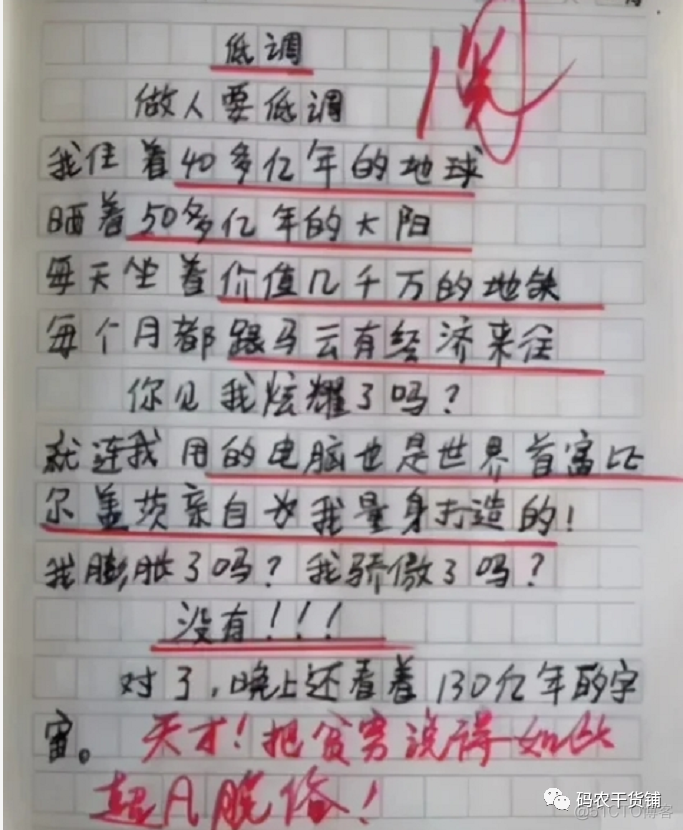 低调
阅
做人要低调
我住着40多亿年的地球
晒着50多亿年的太阳
每天坐着价值几千万的地铁
每个月都跟马云有经济来往
你见我炫耀了吗？
就连我用的电脑也是世界首富比
尔盖茨亲自为我量身打造的！
我膨胀了吗？我骄傲了吗？
没有！！！
对了，晚上还看着130亿年的宇
宙。天才！把贫穷说得如此
超凡脱俗！
码农干货铺
@51CTO博客